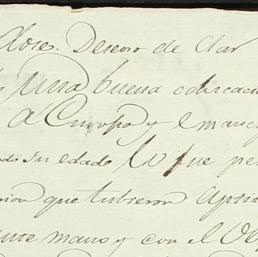 dores. Deseoso de dar
una buena educacion
al Cuerpo y el manej
su edad lo que per
cion que tubieron apti
ente mano y con el Ob